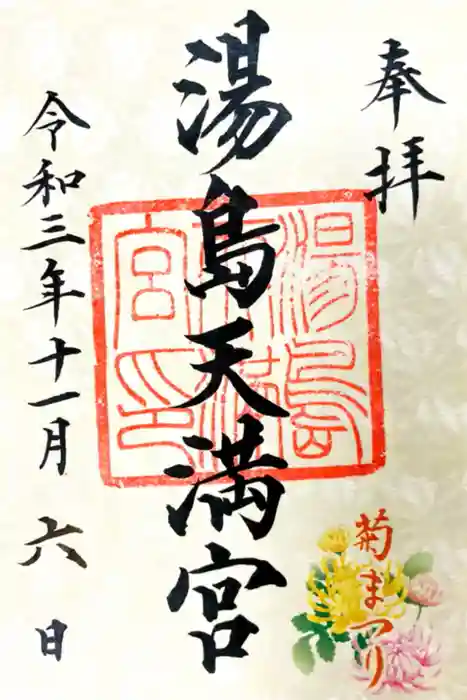 奉拝
湯島天満宮
湯島
天満
宮印
令和三年十一月六日
菊まつり